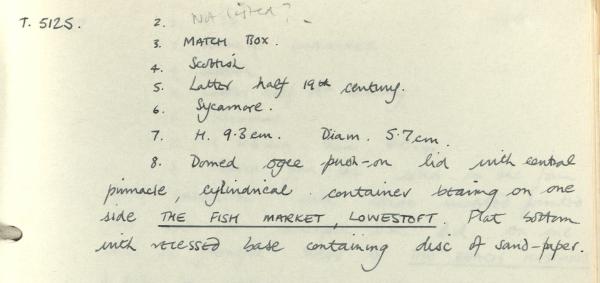 T. 5125. 2. Not listed?
3. MATCH BOX.
4. Scottish
5. Latter half 19th century.
6. Sycamore.
7. H. 9.3cm. Diam. 5.7cm.
8. Domed ogee push-on lid with central
pinnacle, cylindrical container bearing on one
side THE FISH MARKET, LOWESTOFT. Flat bottom
with recessed base containing disc of sand-paper.